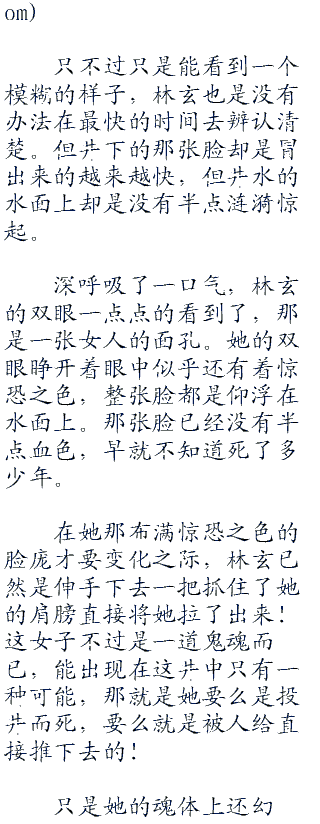 om)
只不过只是能看到一个
模糊的样子，林玄也是没有
办法在最快的时间去辨认清
楚。但井下的那张脸却是冒
出来的越来越快，但井水的
水面上却是没有半点涟漪惊
起。
深呼吸了一口气，林玄
的双眼一点点的看到了，那
是一张女人的面孔。她的双
眼睁开着眼中似乎还有着惊
恐之色，整张脸都是仰浮在
水面上。那张脸已经没有半
点血色，早就不知道死了多
少年。
在她那布满惊恐之色的
脸庞才要变化之际，林玄已
然是伸手下去一把抓住了她
的肩膀直接将她拉了出来！
这女子不过是一道鬼魂而
已，能出现在这井中只有一
种可能，那就是她要么是投
井而死，要么就是被人给直
接推下去的！
只是她的魂体上还幻